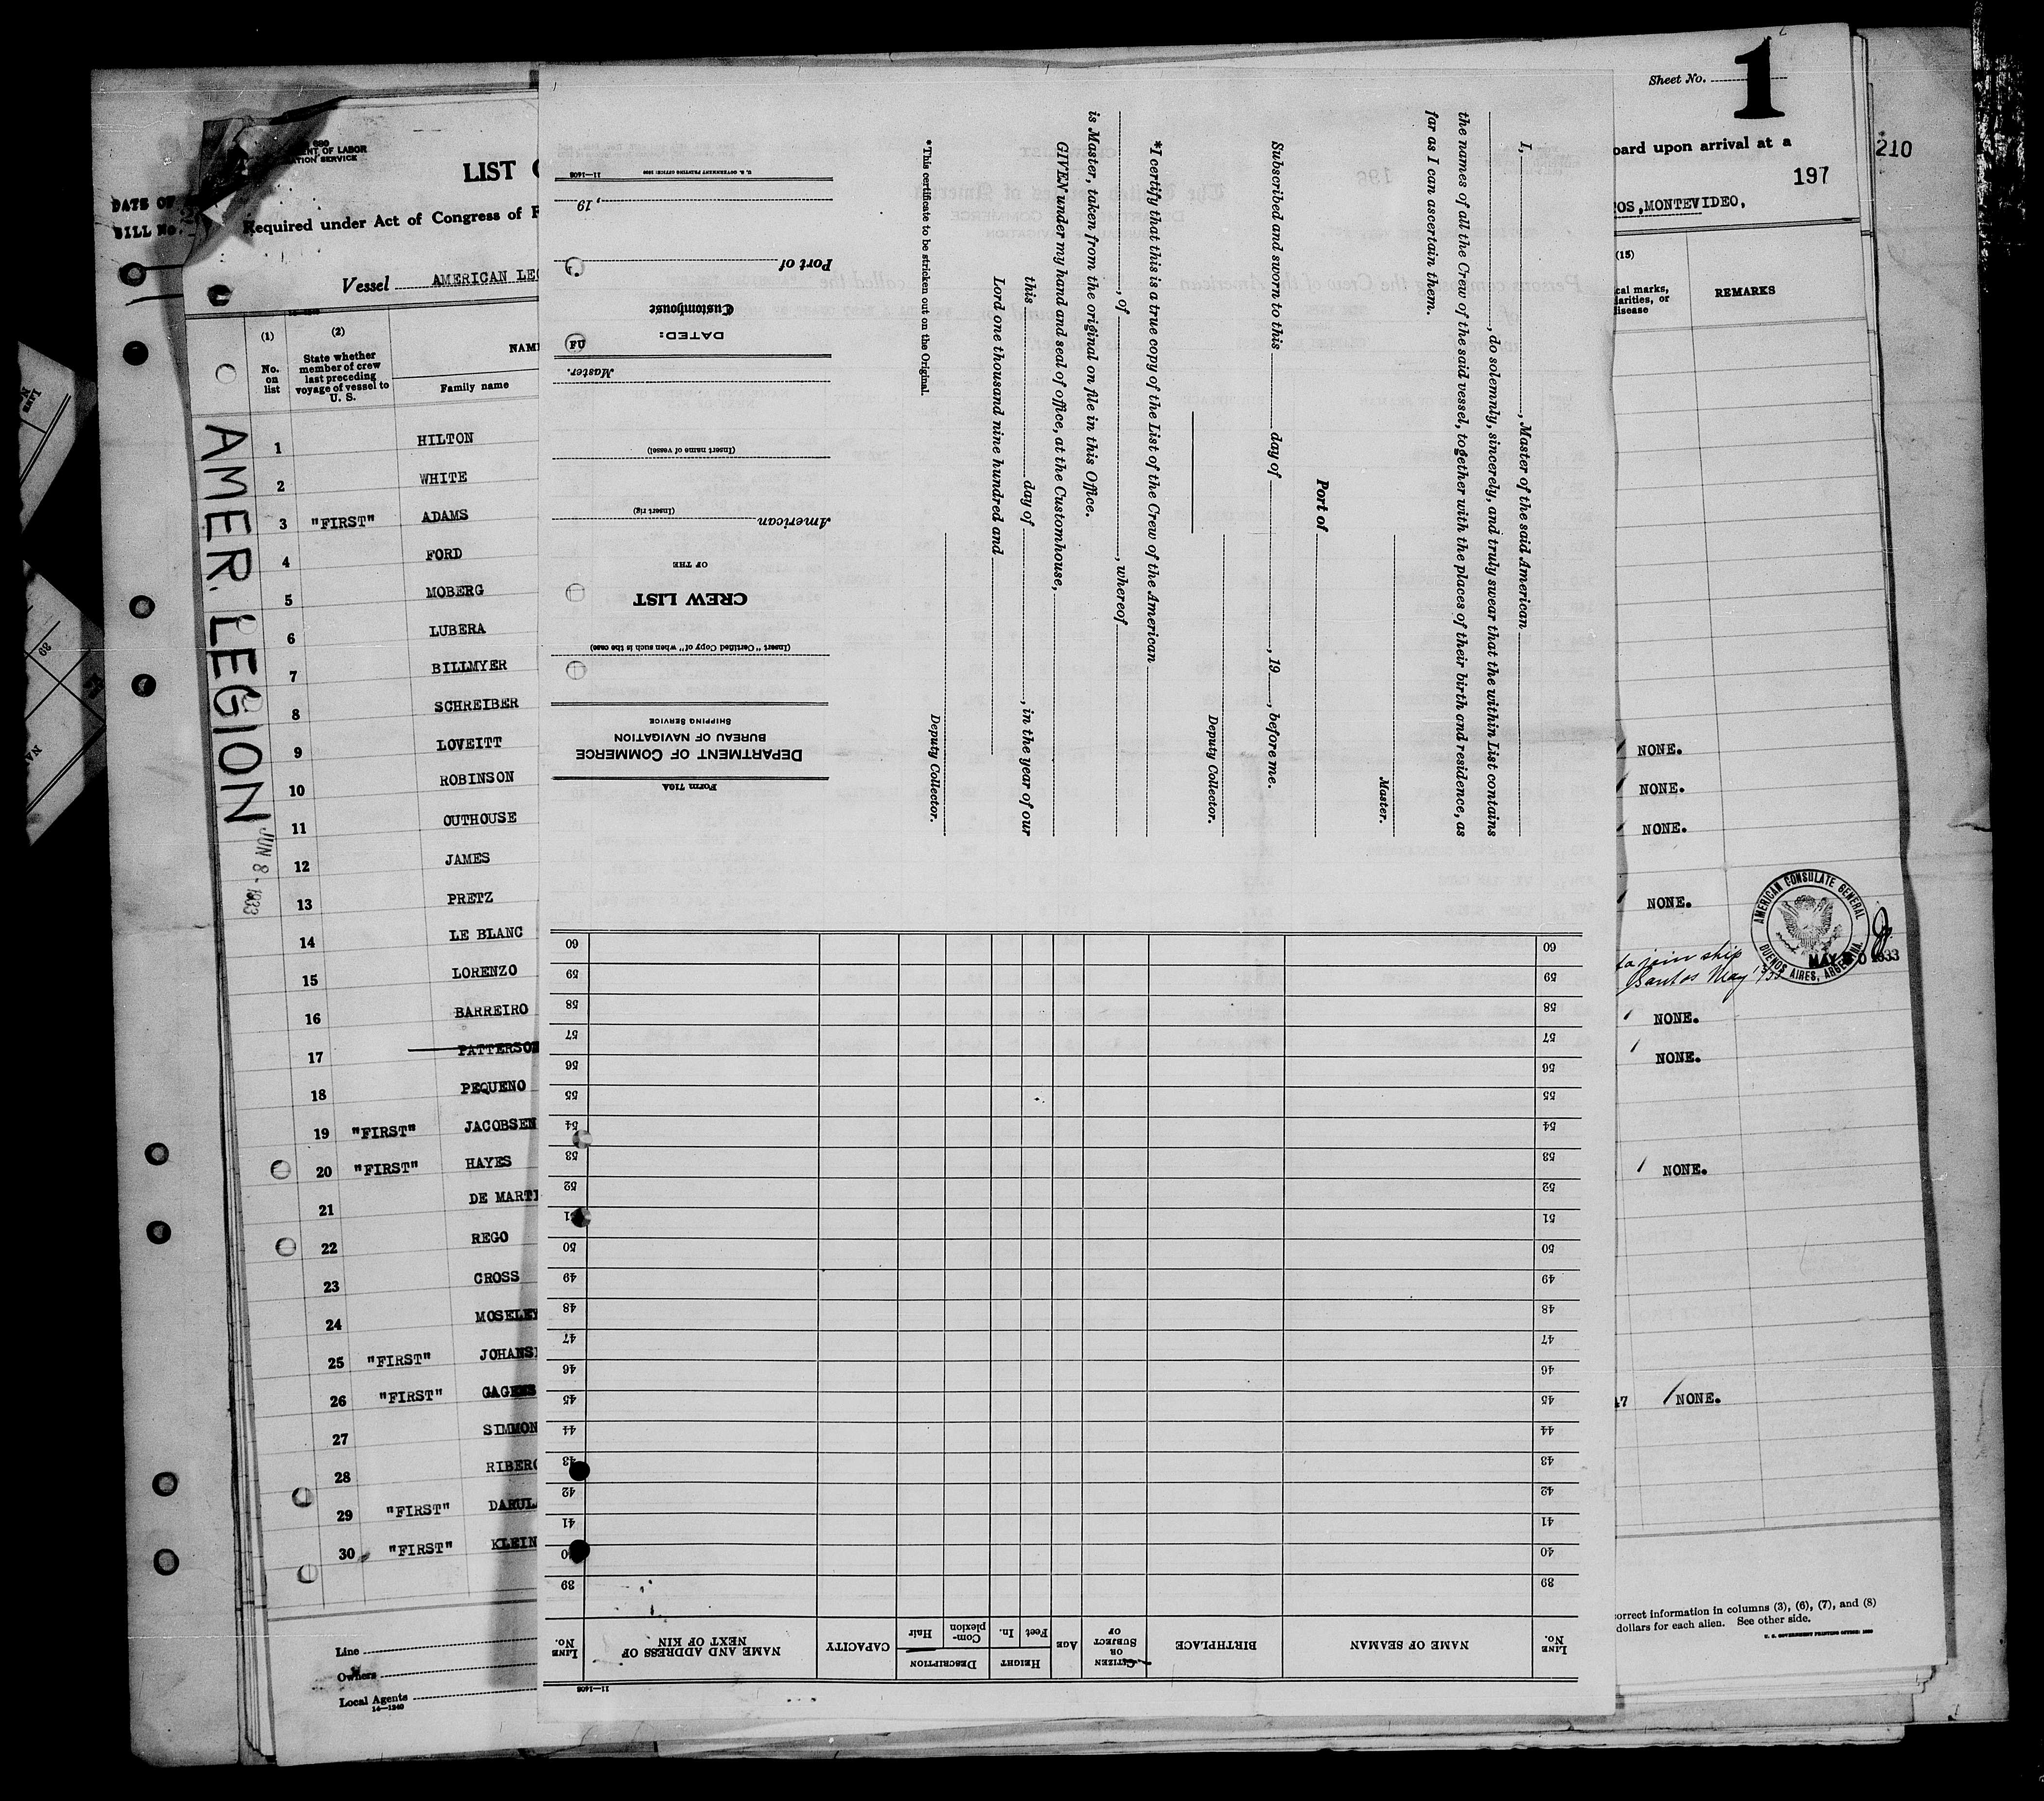 Sheet No.
1
680
ENT OF LABOR
ATION SERVICE
LIST
Required under Act of Congress of
oard upon arrival at a
210
197
DATE OF
BILL No.
Vessel AMERICAN LEG
OS, MONTEVIDEO,
(1)
No.
on
list
(2)
State whether
member of crew
last preceding
voyage of vessel to
U. S.
NAM
Family name
(15)
cal marks,
arities, or
disease
REMARKS
AMER. LEGION
JUN 8 - 1933
1 HILTON
2 WHITE
3 "FIRST" ADAMS
4 FORD
5 MOBERG
6 LUBERA
7 BILLMYER
8 SCHREIBER
9 LOVEITT
10 ROBINSON
11 OUTHOUSE
12 JAMES
13 PRETZ
14 LE BLANC
15 LORENZO
16 BARREIRO
17 PATTERSON
18 PEQUENO
19 "FIRST" JACOBSEN
20 "FIRST" HAYES
21 DE MARTI
22 REGO
23 CROSS
24 MOSELEY
25 "FIRST" JOHANS
26 "FIRST" GAGENS
27 SIMMON
28 RIBER
29 "FIRST" DARUL
30 "FIRST" KLEIN
Line
Owners
Local Agents
14—1240
NONE.
NONE.
NONE.
NONE.
AMERICAN CONSULATE GENERAL
BUENOS AIRES, ARGENTINA.
to join ship
Santos May
NONE.
NONE.
NONE.
47 NONE.
orrect information in columns (3), (6), (7), and (8)
dollars for each alien. See other side.
U. S. GOVERNMENT PRINTING OFFICE
I, , Master of the said American
, do solemnly, sincerely, and truly swear that the within List contains
the names of all the Crew of the said vessel, together with the places of their birth and residence, as
far as I can ascertain them.
Master.
Port of
Subscribed and sworn to this day of , 19 , before me.
Deputy Collector.
*I certify that this is a true copy of the List of the Crew of the American
, of , whereof
is Master, taken from the original on file in this Office.
GIVEN under my hand and seal of office, at the Customhouse,
this day of , in the year of our
Lord one thousand nine hundred and
Deputy Collector.
*This certificate to be stricken out on the Original.
Form 710A
DEPARTMENT OF COMMERCE
BUREAU OF NAVIGATION
SHIPPING SERVICE
(Insert "Certified Copy of" when such is the case)
CREW LIST
OF THE
American
(Insert rig)
(Insert name of vessel)
Master.
DATED:
Customhouse
Port of
, 19
U. S. GOVERNMENT PRINTING OFFICE
11—1408
11—1408
LINE
No.
NAME OF SEAMAN
BIRTHPLACE
CITIZEN
OR
SUBJECT
OF
AGE
HEIGHT
Feet
In.
DESCRIPTION
Com-
plexion
Hair
CAPACITY
NAME AND ADDRESS OF
NEXT OF KIN
LINE
No.
39 39
40 40
41 41
42 42
43 43
44 44
45 45
46 46
47 47
48 48
49 49
50 50
51 51
52 52
53 53
54 54
55 55
56 56
57 57
58 58
59 59
60 60